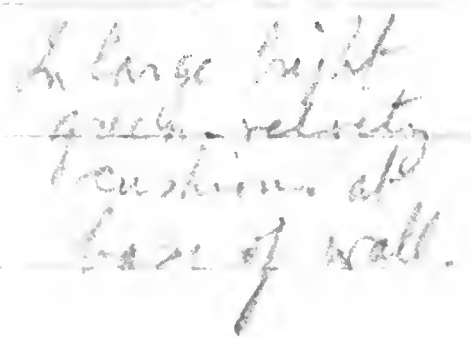 A large bright
green velvety
cushion at
base of wall.